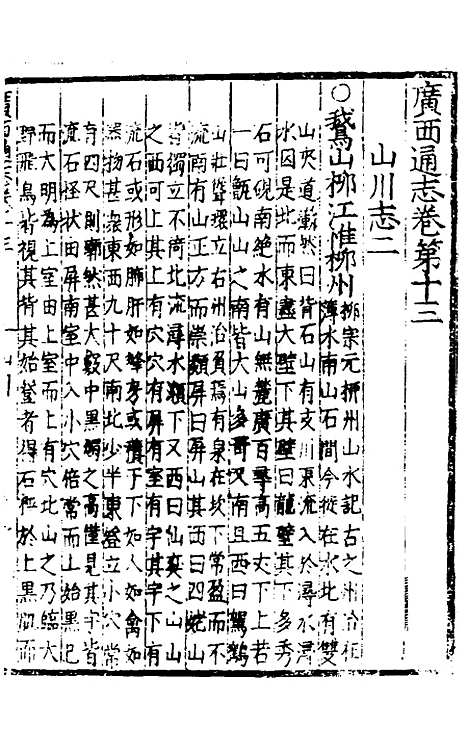 廣西通志卷第十三
山川志二
○鵞山柳江惟柳州柳宗元柳州山水記古之州治在
潯水南山石間今徙在水北有雙
山夾道嶄然曰背石山有支川東流入於潯水潯
水因是北而東盡大壁下其壁曰龍壁其下多秀
石可硯南絶水有山無麓廣百尋高五丈下上若
一曰甑山山之南皆大山多奇又南且西曰駕鶴
山壯聳環立古州治負焉有泉在坎下常盈而不
流南有山正方而崇類屏曰屏山其西曰四姥山
皆獨立不倚北流潯水瀨下又西曰仙奕之山山
之西可上其上有穴穴有屏有室有宇其宇下有
流石成形如肺肝如茄房或積于下如人如禽如
器物甚衆東西九十尺南北少半東登立小穴常
有四尺則廓然甚大竅中黑燭之高僅見其宇皆
流石怪狀由屏南室中入小穴倍常而上始黑已
而大明為上室由上室而上有穴北出之乃臨大
野飛鳥皆視其背其始登者得石枰於上黑肌而